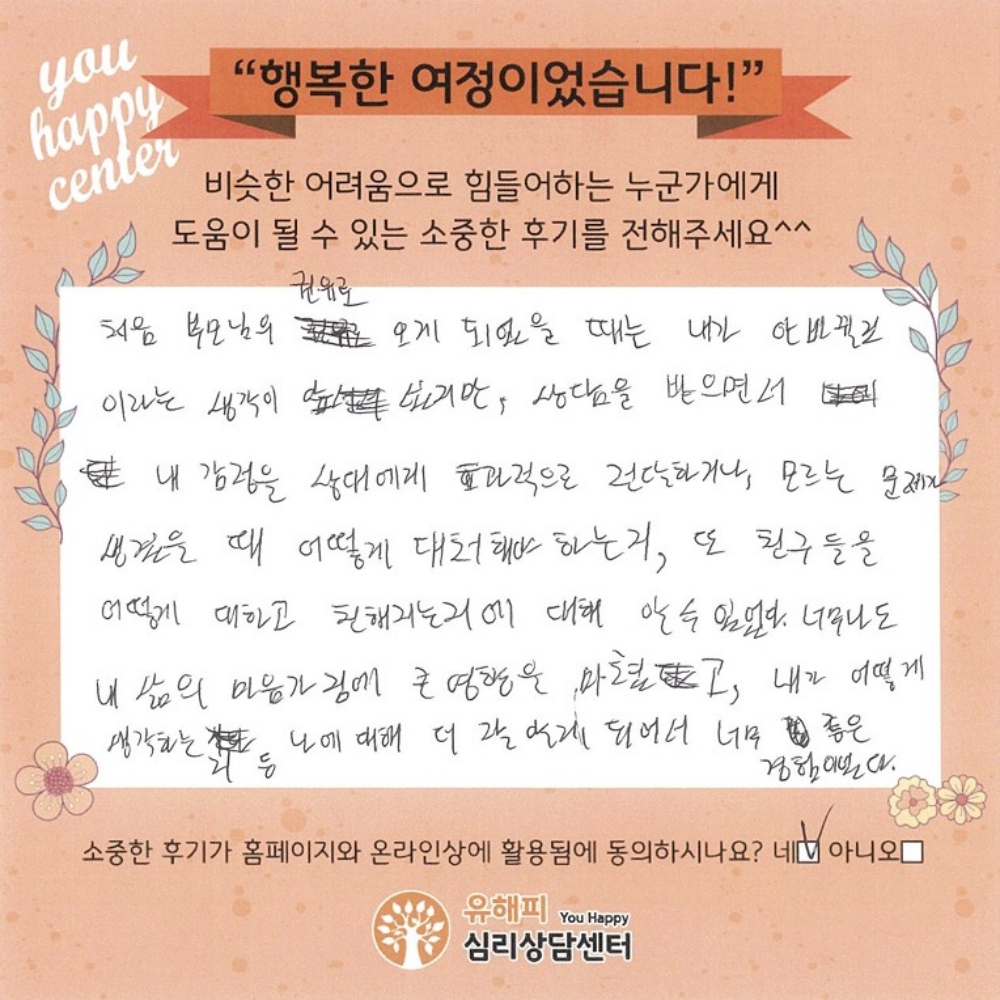 you
happy
center
“행복한 여정이었습니다!”
비슷한 어려움으로 힘들어하는 누군가에게
도움이 될 수 있는 소중한 후기를 전해주세요^^
권유로
처음 부모님의 오게 되었을 때는 내가 안 바뀔 것
이라는 생각이 컸지만, 상담을 받으면서
내 감정을 상대에게 효과적으로 전달하거나, 모르는 문제가
생겼을 때 어떻게 대처해야 하는지, 또 친구들을
어떻게 대하고 친해지는지에 대해 알 수 있었다. 너무나도
내 삶의 마음가짐에 큰 영향을 고, 내가 어떻게
생각하는 나에 대해 더 잘 알게 되어서 너무 좋은
지 등 경험이었다.
소중한 후기가 홈페이지와 온라인상에 활용됨에 동의하시나요? 네☑ 아니오□
유해피 You Happy
심리상담센터